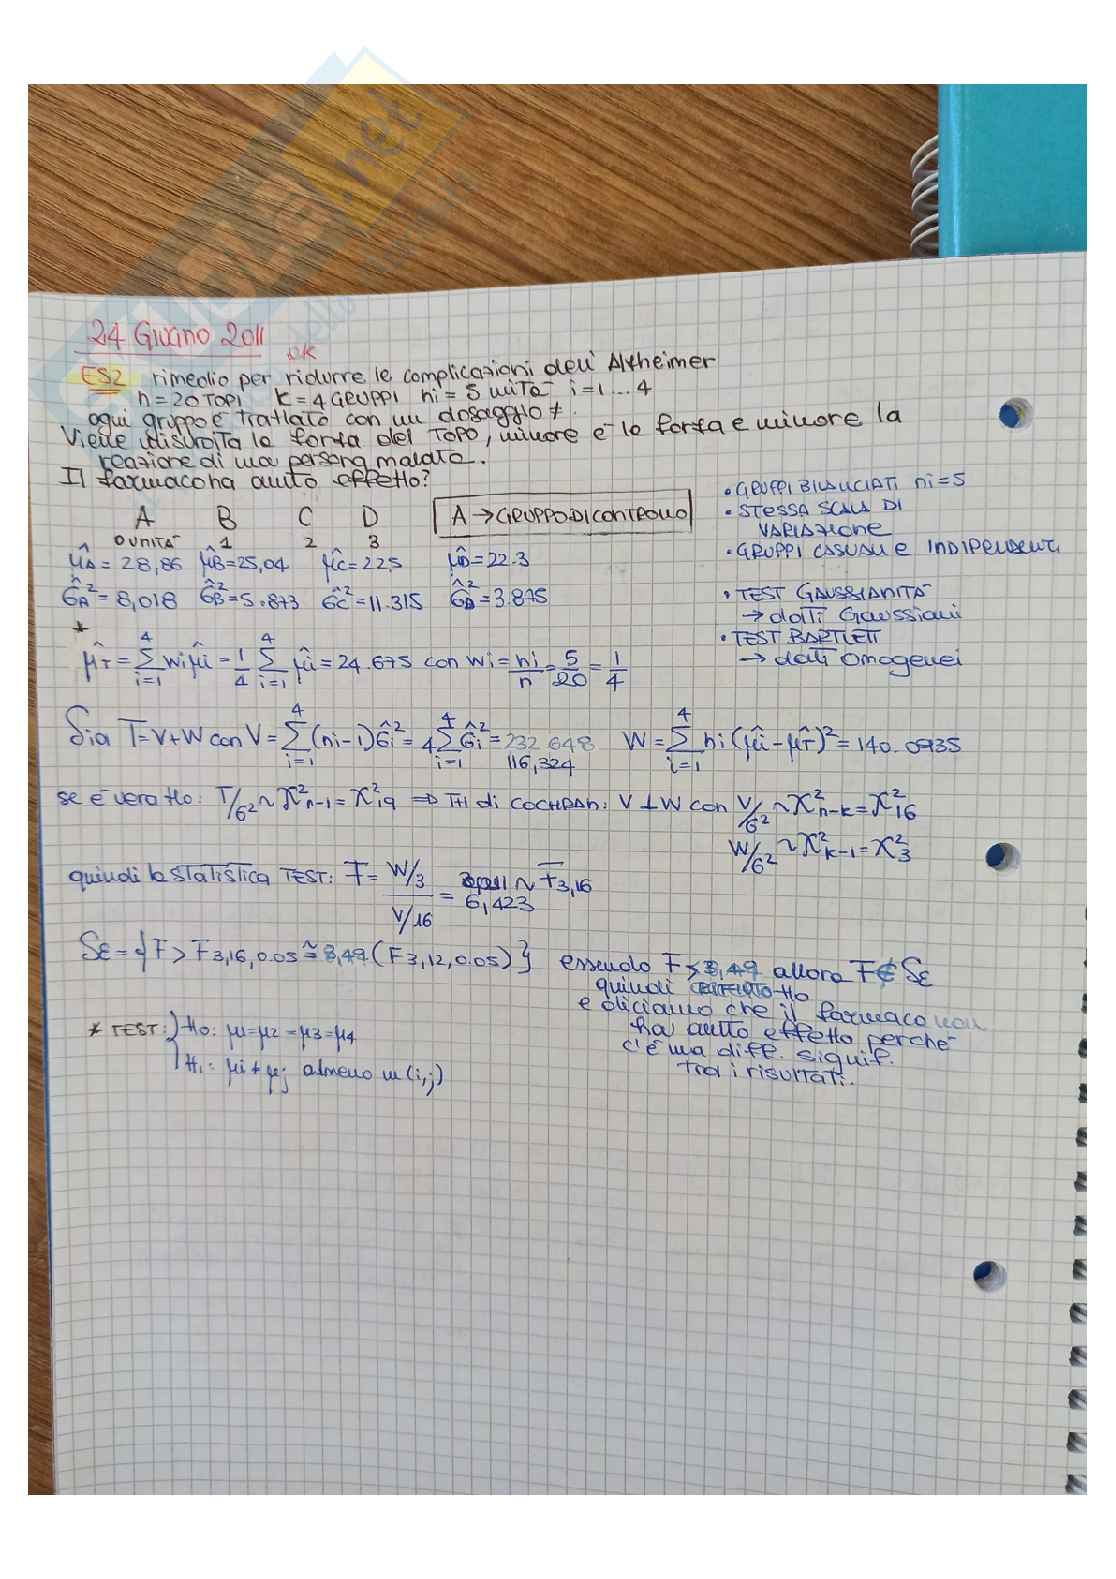 24 Giugno 2011
OK
ES2 rimedio per ridurre le complicazioni dell'Altheimer
n=20 TOPI K=4 GRUPPI ni=5 unità i=1...4
ogni gruppo è trattato con un dosaggio ≠.
Viene misurata la forza del topo, minore è la forza e minore la
reazione di una persona malata.
Il farmaco ha avuto effetto?
A B C D
0 UNITÀ 1 2 3
A → GRUPPO DI CONTROLLO
μ̂A = 28,86 μ̂B = 25,04 μ̂C = 22.5 μ̂D = 22.3
σ̂A² = 8,018 σ̂B² = 5.873 σ̂C² = 11.315 σ̂D² = 3.875
• GRUPPI BILANCIATI ni=5
• STESSA SCALA DI
VARIAZIONE
• GRUPPI CASUALI E INDIPENDENTI
• TEST GAUSSIANITÀ
→ dati Gaussiani
• TEST BARTLETT
→ dati omogenei
*
μ̂T = Σ(i=1..4) wi μ̂i = 1/4 Σ(i=1..4) μ̂i = 24.675 con wi = ni/n = 5/20 = 1/4
Sia T=V+W con V = Σ(i=1..4) (ni-1)σ̂i² = 4 Σ(i=1..4) σ̂i² = 232.648 W = Σ(i=1..4) ni(μ̂i - μ̂T)² = 140.0935
116,324
se è vero H0: T/σ² ~ χ²n-1 = χ²19 ⇒ TH di COCHRAN: V ⊥ W con V/σ² ~ χ²n-k = χ²16
W/σ² ~ χ²k-1 = χ²3
quindi la STATISTICA TEST: F = (W/3)/(V/16) = 6,423 ~ F3,16
Sε = {F > F3,16,0.05 ≅ 3,49 (F3,12,0.05)} essendo F > 3,49 allora F ∈ Sε
quindi H0
e diciamo che il farmaco non
ha avuto effetto perché
c'è una diff. signif.
tra i risultati.
* TEST: { H0: μ1=μ2=μ3=μ4
H1: μi ≠ μj almeno un (i,j)